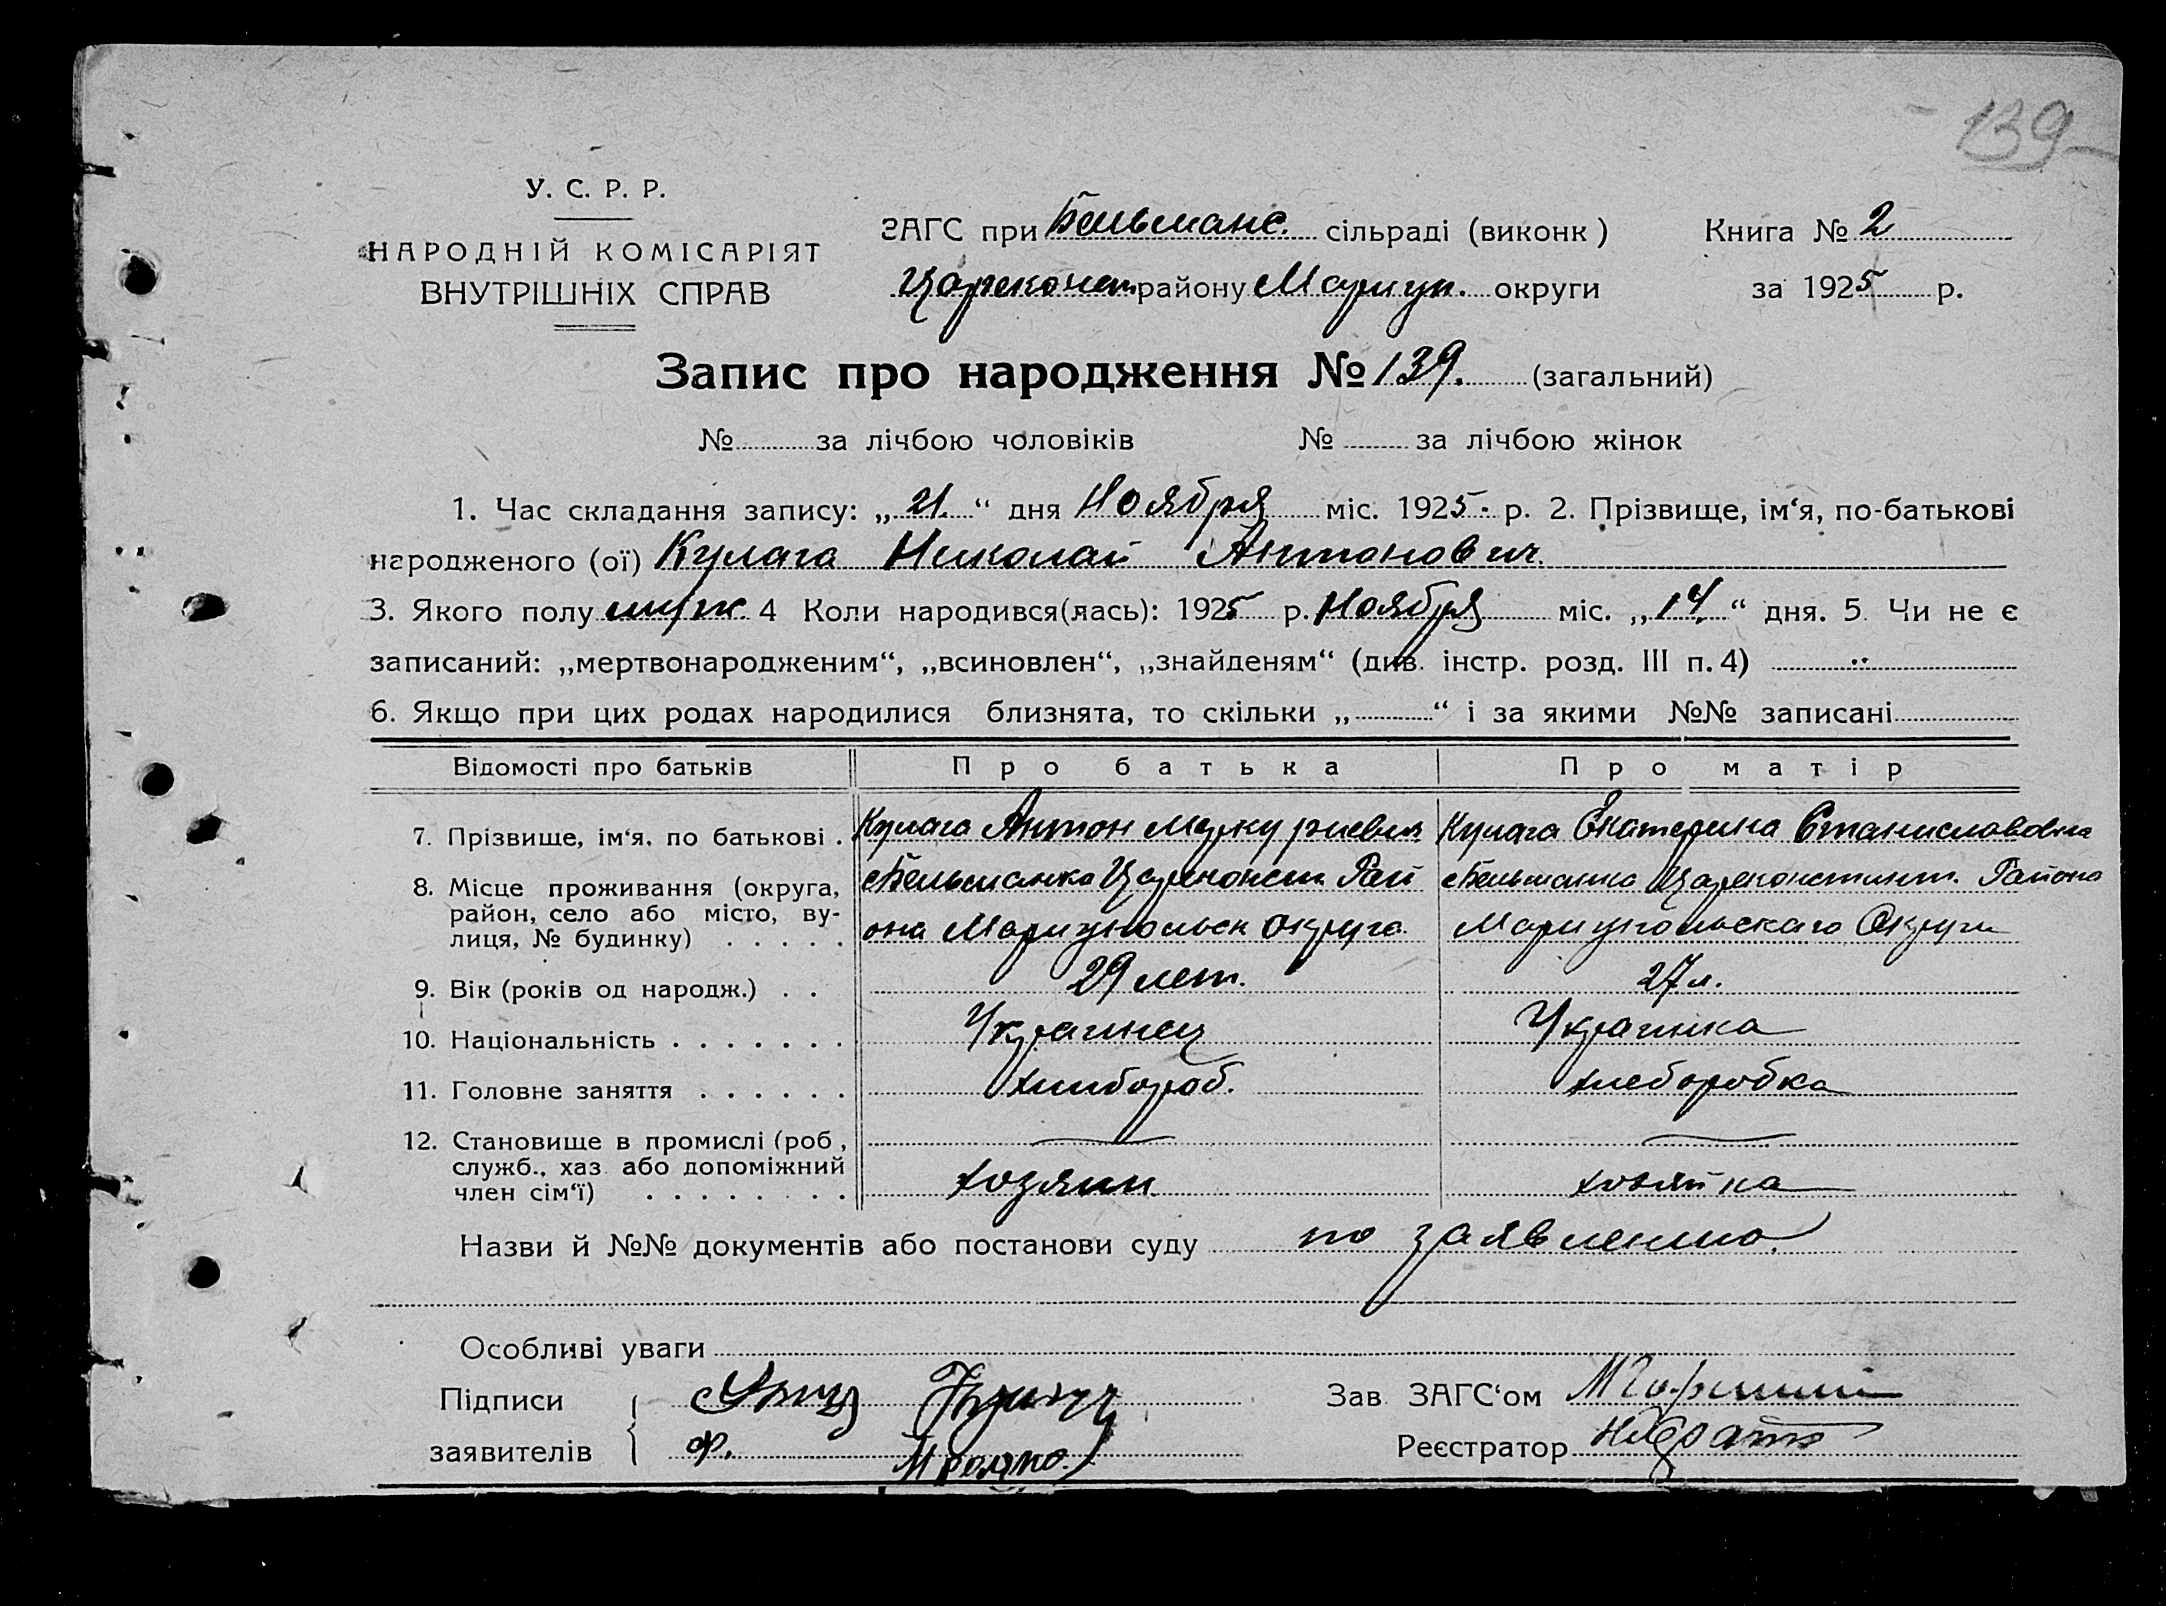 139
У. С. Р. Р.
НАРОДНІЙ КОМІСАРІЯТ
ВНУТРІШНІХ СПРАВ
ЗАГС при Бельманс. сільраді (виконк)
Книга № 2
Цареконст. району Мариуп. округи
за 1925 р.
Запис про народження № 139. (загальний)
№ за лічбою чоловіків № за лічбою жінок
1. Час складання запису: „21.“ дня Ноября міс. 1925. р. 2. Прізвище, ім‘я, по-батькові
народженого (ої) Кулага Николай Антонович.
3. Якого полу муж. 4 Коли народився(лась): 1925 р. Ноября міс. „14.“ дня. 5. Чи не є
записаний: „мертвонародженим“, „всиновлен“, „знайденям“ (див. інстр. розд. III п. 4)
6. Якщо при цих родах народилися близнята, то скільки „ “ і за якими №№ записані
Відомості про батьків Про батька Про матір
7. Прізвище, ім‘я, по батькові . Кулага Антон Меркуриевич Кулага Екатерина Станиславовна
8. Місце проживання (округа, район, село або місто, вулиця, № будинку) . . . . .
с Бельманка Цареконст. Рай
она Мариупольск округа.
с Бельманка Цареконстинт. Района
Мариупольскаго Округи
9. Вік (років од народж.) . . 29 лет. 27 л.
10. Національність . . . . . . . Украинец Украинка
11. Головне заняття . . . . . . хлибороб. хлеборобка
12. Становище в промислі (роб., служб., хаз. або допоміжний член сім‘ї) . . . . . . . .
хозяин хозяйка
Назви й №№ документів або постанови суду по заявлению.
Особливі уваги
Підписи
заявителів
Ф.
Зав. ЗАГС‘ом
Реєстратор